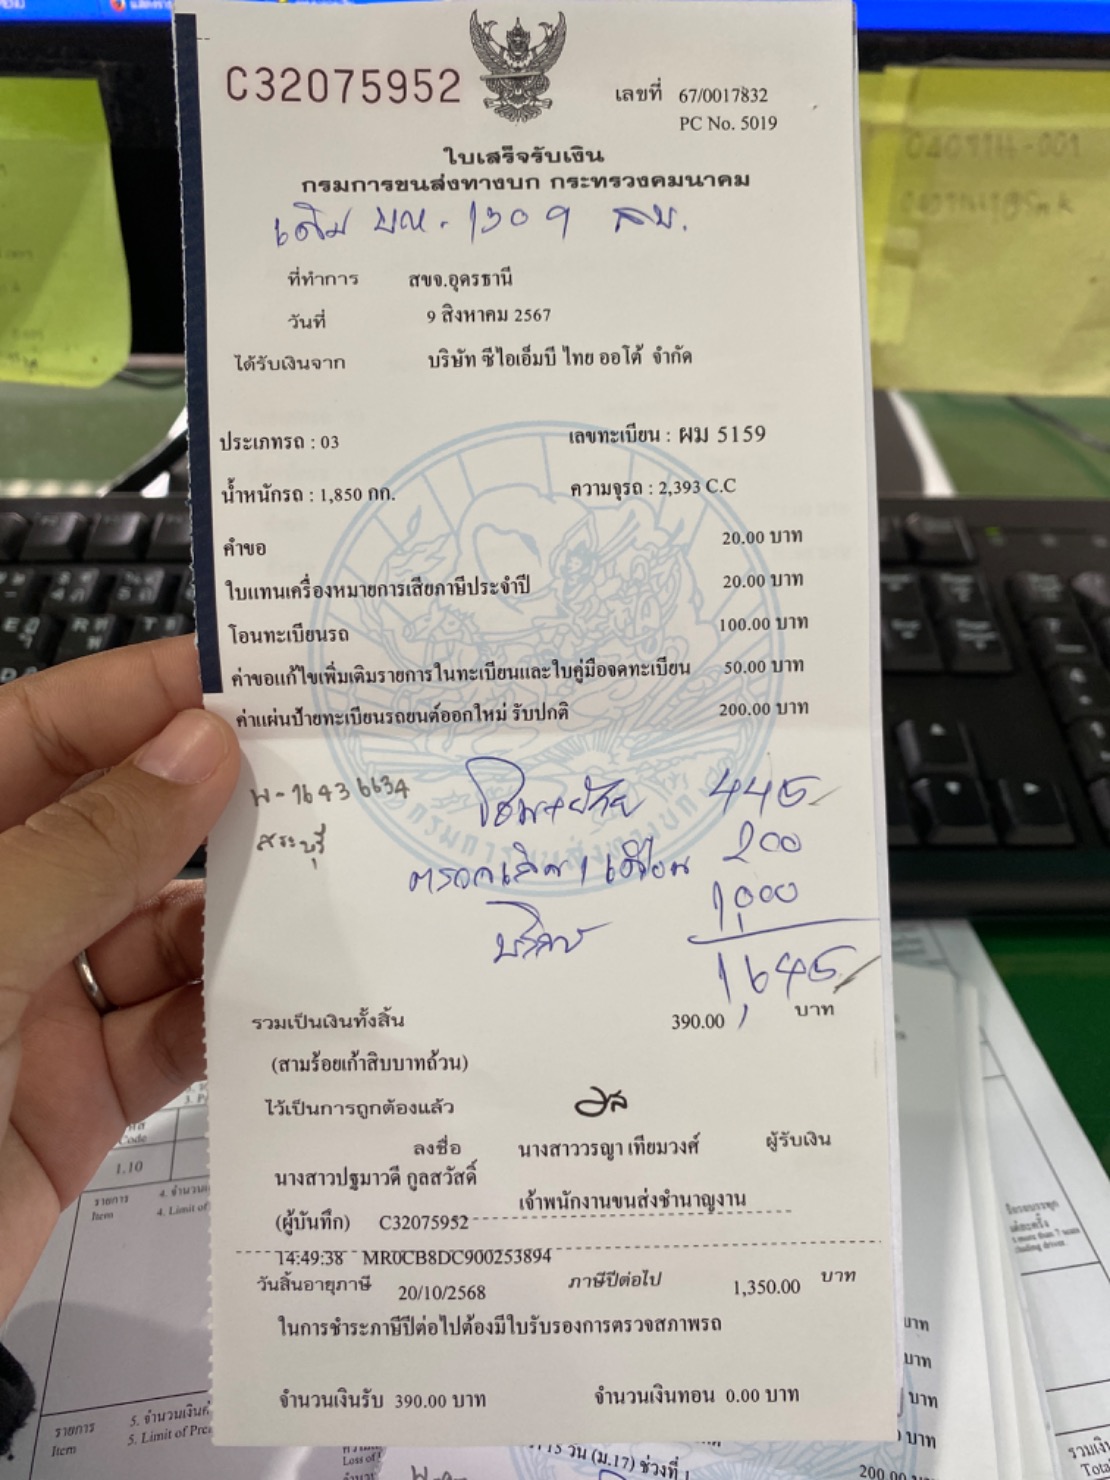 C32075952
เลขที่ 67/0017832
PC No. 5019
ใบเสร็จรับเงิน
กรมการขนส่งทางบก กระทรวงคมนาคม
เดิม บห - 1309 สบ.
ที่ทำการ สขจ.อุดรธานี
วันที่ 9 สิงหาคม 2567
ได้รับเงินจาก บริษัท ซีไอเอ็มบี ไทย ออโต้ จำกัด
ประเภทรถ : 03 เลขทะเบียน : ผม 5159
น้ำหนักรถ : 1,850 กก. ความจุรถ : 2,393 C.C
คำขอ 20.00 บาท
ใบแทนเครื่องหมายการเสียภาษีประจำปี 20.00 บาท
โอนทะเบียนรถ 100.00 บาท
ค่าขอแก้ไขเพิ่มเติมรายการในทะเบียนและใบคู่มือจดทะเบียน 50.00 บาท
ค่าแผ่นป้ายทะเบียนรถยนต์ออกใหม่ รับปกติ 200.00 บาท
พ-16436634
สระบุรี
445
200
บริการ 1,000
1,645
กรมการขนส่งทางบก
รวมเป็นเงินทั้งสิ้น 390.00 บาท
(สามร้อยเก้าสิบบาทถ้วน)
ไว้เป็นการถูกต้องแล้ว
ลงชื่อ นางสาววรญา เทียมวงศ์ ผู้รับเงิน
นางสาวปฐมาวดี กูลสวัสดิ์
เจ้าพนักงานขนส่งชำนาญงาน
(ผู้บันทึก) C32075952
14:49:38 MR0CB8DC900253894
วันสิ้นอายุภาษี 20/10/2568 ภาษีปีต่อไป 1,350.00 บาท
ในการชำระภาษีปีต่อไปต้องมีใบรับรองการตรวจสภาพรถ
จำนวนเงินรับ 390.00 บาท จำนวนเงินทอน 0.00 บาท
Code
1.10
รายการ
Item
4. Limit of
รายการ
Item
5. จำนวนเงิน
5. Limit of
15 วัน (ม.17) ช่วงที่ 1
บาท
บาท
บาท
บาท
200.00